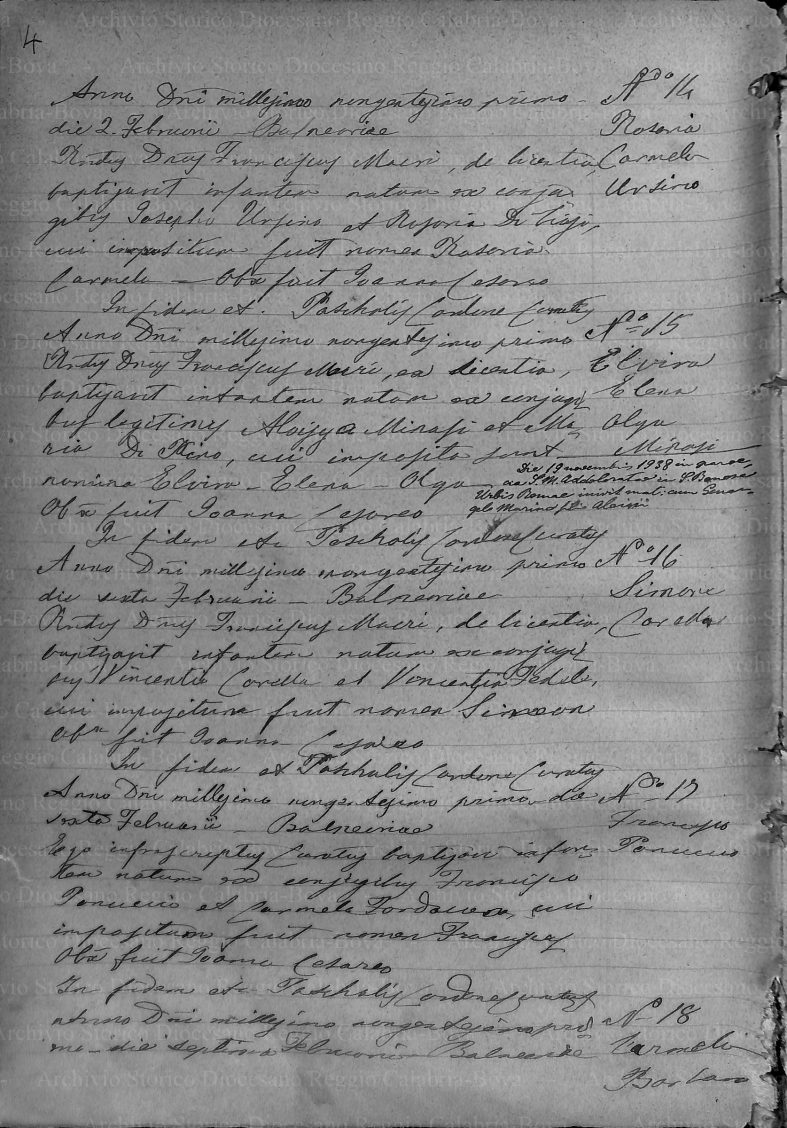 4
Anno Dni millesimo nongentesimo primo
die 2. Februarii - Balneariae
Rndus Dnus Franciscus Macri, de licentia,
baptizavit infantem natam ex conju
gibus Josepho Ursino et Rosaria Di
cui impositum fuit nomen Rosaria
Carmela - Obx fuit Joanna Cesareo
In fidem et. Paschalis Cardone Curatus
Nº 14
Rosaria
Carmela
Ursino
Anno Dni millesimo nongentesimo primo
Rndus Dnus Franciscus Macri, ex licentia,
baptizavit infantem natam ex conjugi
bus legitimis Aloisya Minasi et Ma
ria Di Reno, cui imposita sunt
nomina Elvira - Elena - Olga
Obx fuit Joanna Cesareo
In fidem etc Paschalis Cardone Curatus
Nº 15
Elvira
Elena
Olga
Minasi
Die 19 novembris 1938 in paroe,
cia S. M. Addolorata in
Urbis Romae inivit mat: cum
gelo Marino fil. Aloisii
Anno Dni millesimo nongentesimo primo
die sexta Februarii - Balneariae
Rndus Dnus Franciscus Macri, de licentia,
baptizavit infantem natum ex conjugi
bus Vincentio Corella et Vincentia Fedele,
cui impositum fuit nomen Simeon
Obx fuit Joanna Cesareo
In fidem et Paschalis Cardone Curatus
Nº 16
Simone
Corella
Anno Dni millesimo nongentesimo primo, die
sexta Februarii - Balneariae
Ego infrascriptus Curatus baptizavi infan
tem natum ex conjugibus Francisco
Panuccio et Carmela, cui
impositum fuit nomen Franciscus
Obx fuit Joanna Cesareo
In fidem etc Paschalis Cardone Curatus
Nº 17
Francesco
Panuccio
Anno Dni millesimo nongentesimo pri
mo - die septima Februarii - Balneariae
Nº 18
Carmelo
Barbaro
Archivio Storico Diocesano Reggio Calabria-Bova